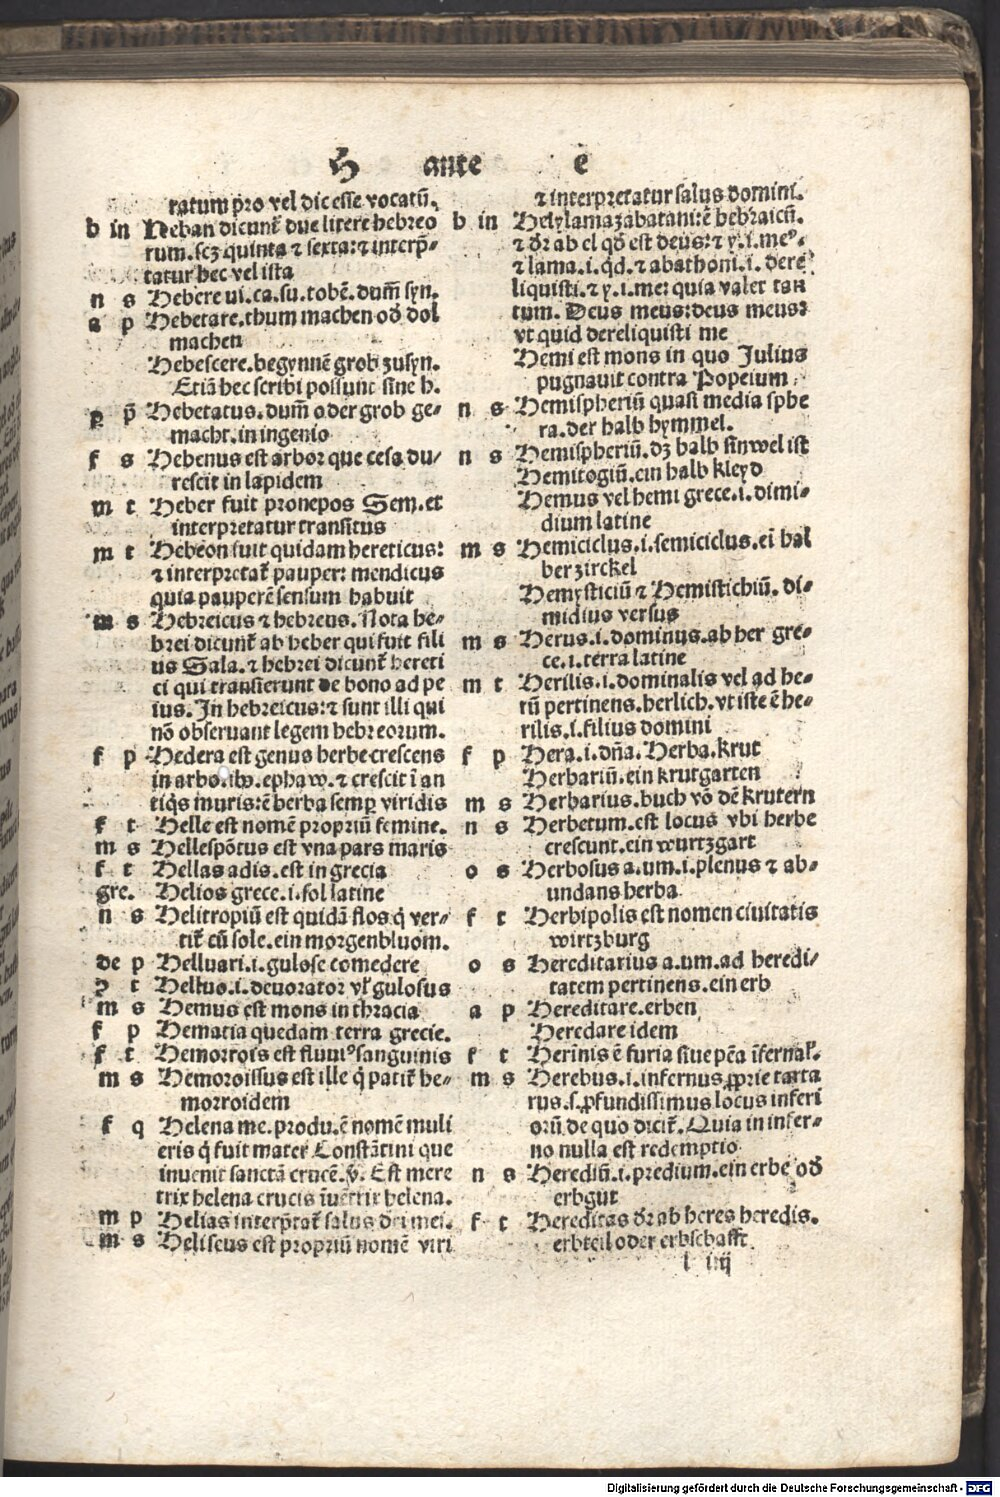 H ante e
ratum pro vel dic esse vocatū.
b in Heban dicunt᷑ due litere hebreo
rum. scꝫ quinta ⁊ sexta: ⁊ interp̄-
tatur hec vel ista
n s Hebere ui. ca. su. tobē. dum̄ syn.
a p Hebetare. thum machen od̄ dol
machen
Hebescere. begynnē grob zusyn.
Etiā hec scribi possunt sine h.
p̄ Hebetatus. dum̄ oder grob ge-
macht. in ingenio
f s Hebenus est arbor que cesa du-
rescit in lapidem
m t Heber fuit pronepos Sem. et
interpretatur transitus
m t Hebeon fuit quidam hereticus:
⁊ interpretat᷑ pauper: mendicus
quia pauperē sensum habuit
m s Hebreicus ⁊ hebreus. Nota he-
brei dicunt᷑ ab heber qui fuit fili
us Sala. ⁊ hebrei dicunt᷑ hereti
ci qui transierunt de bono ad pe
ius. In hebreicus: ⁊ sunt illi qui
nō obseruant legem hebreorum.
f p Hedera est genus herbe crescens
in ephaw. ⁊ crescit ī an
tiq̄s muris: ē herba semꝑ viridis
f t Helle est nomē propriū femine.
m s Hellespōtus est vna pars maris
f t Hellas adis. est in grecia
gre. Helios grece. i. sol latine
n s Helitropiū est quidā flos q̄ ver-
tit᷑ cū sole. ein morgenbluom.
de p Helluari. i. gulose comedere
ꝯ t Helluo. i. deuorator vl̕ gulosus
m s Hemus est mons in thracia
f p Hematia quedam terra grecie.
f t Hemorrois est fluxꝰ sanguinis
m s Hemoroissus est ille q̄ patit᷑ he-
morroidem
f q Helena me. produ. ē nomē muli
eris q̄ fuit mater Constātini que
inuenit sanctā crucē. v̄. Est mere
trix helena crucis īuētrix helena.
m p Helias interp̄tat᷑ salus dei mei.
m s Heliseus est propriū nomē viri
⁊ interpretatur salus domini.
b in Hely lamazabatani: ē hebraicū.
⁊ dr̄ ab el qd̄ est deus: ⁊ y. i. meꝰ.
⁊ lama. i. qd̄. ⁊ abathoni. i. dere
liquisti. ⁊ y. i. me: quia valet tan
tum. Deus meus: deus meus:
vt quid dereliquisti me
Hemi est mons in quo Julius
pugnauit contra Popeium.
n s Hemispheriū quasi media sphe
ra. der halb hymmel.
n s Hemispheriū. dꝫ halb sinwel ist
Hemitogiū. ein halb kleyd
Hemus vel hemi grece. i. dimi-
dium latine
m s Hemiciclus. i. semiciclus. ei hal
ber zirckel
Hemysticiū ⁊ Hemistichiū. di-
midius versus
m s Herus. i. dominus. ab her gre-
ce. i. terra latine
m t Herilis. i. dominalis vel ad he-
rū pertinens. herlich. vt iste ē he-
rilis. i. filius domini
f p Hera. i. dn̄a. Herba. krut
Herbariū. ein krutgarten
m s Herbarius. buch vō dē krutern
n s Herbetum. est locus vbi herbe
crescunt. ein wurtzgart
o s Herbosus a. um. i. plenus ⁊ ab-
undans herba
f t Herbipolis est nomen ciuitatis
wirtzburg
o s Hereditarius a. um. ad heredi-
tatem pertinens. ein erb
a p Hereditare. erben
Heredare idem
f t Herinis ē furia siue pēa īfernal̕.
m s Herebus. i. infernus ꝓprie tarta
rus. s. ꝓfundissimus locus inferi
orū. de quo dicit᷑. Quia in infer-
no nulla est redemptio
n s Herediū. i. predium. ein erbe od̄
erbgut
f t Hereditas dr̄ ab heres heredis.
erbteil oder erbschafft
l iiij
Digitalisierung gefördert durch die Deutsche Forschungsgemeinschaft - DFG